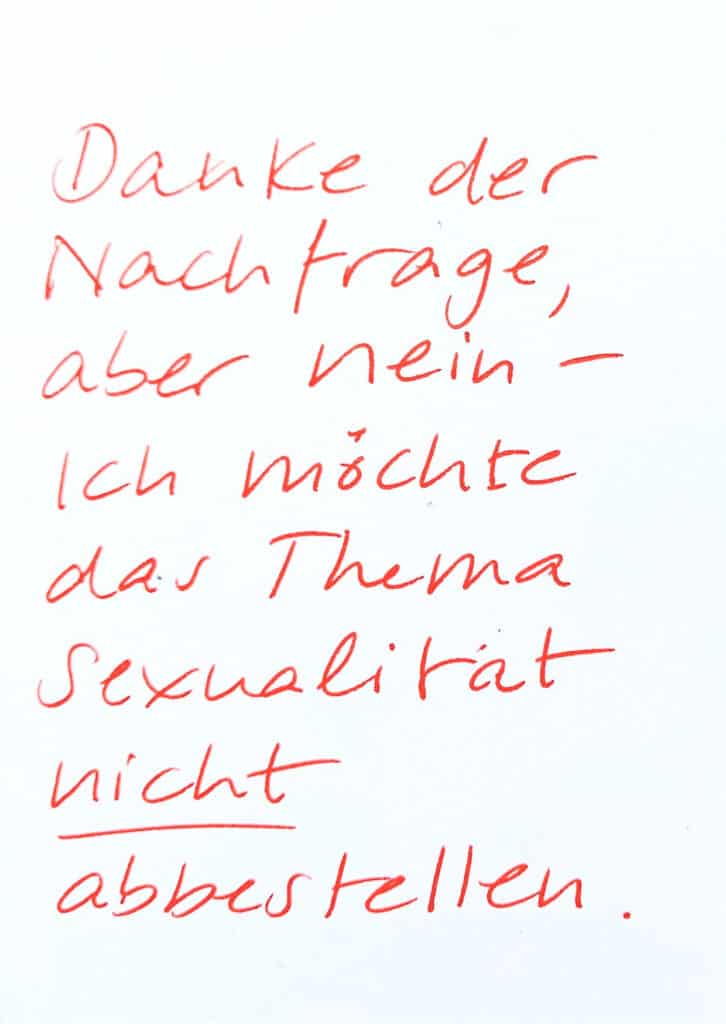 Danke der
Nachfrage,
aber nein –
Ich möchte
das Thema
Sexualität
nicht
abbestellen.